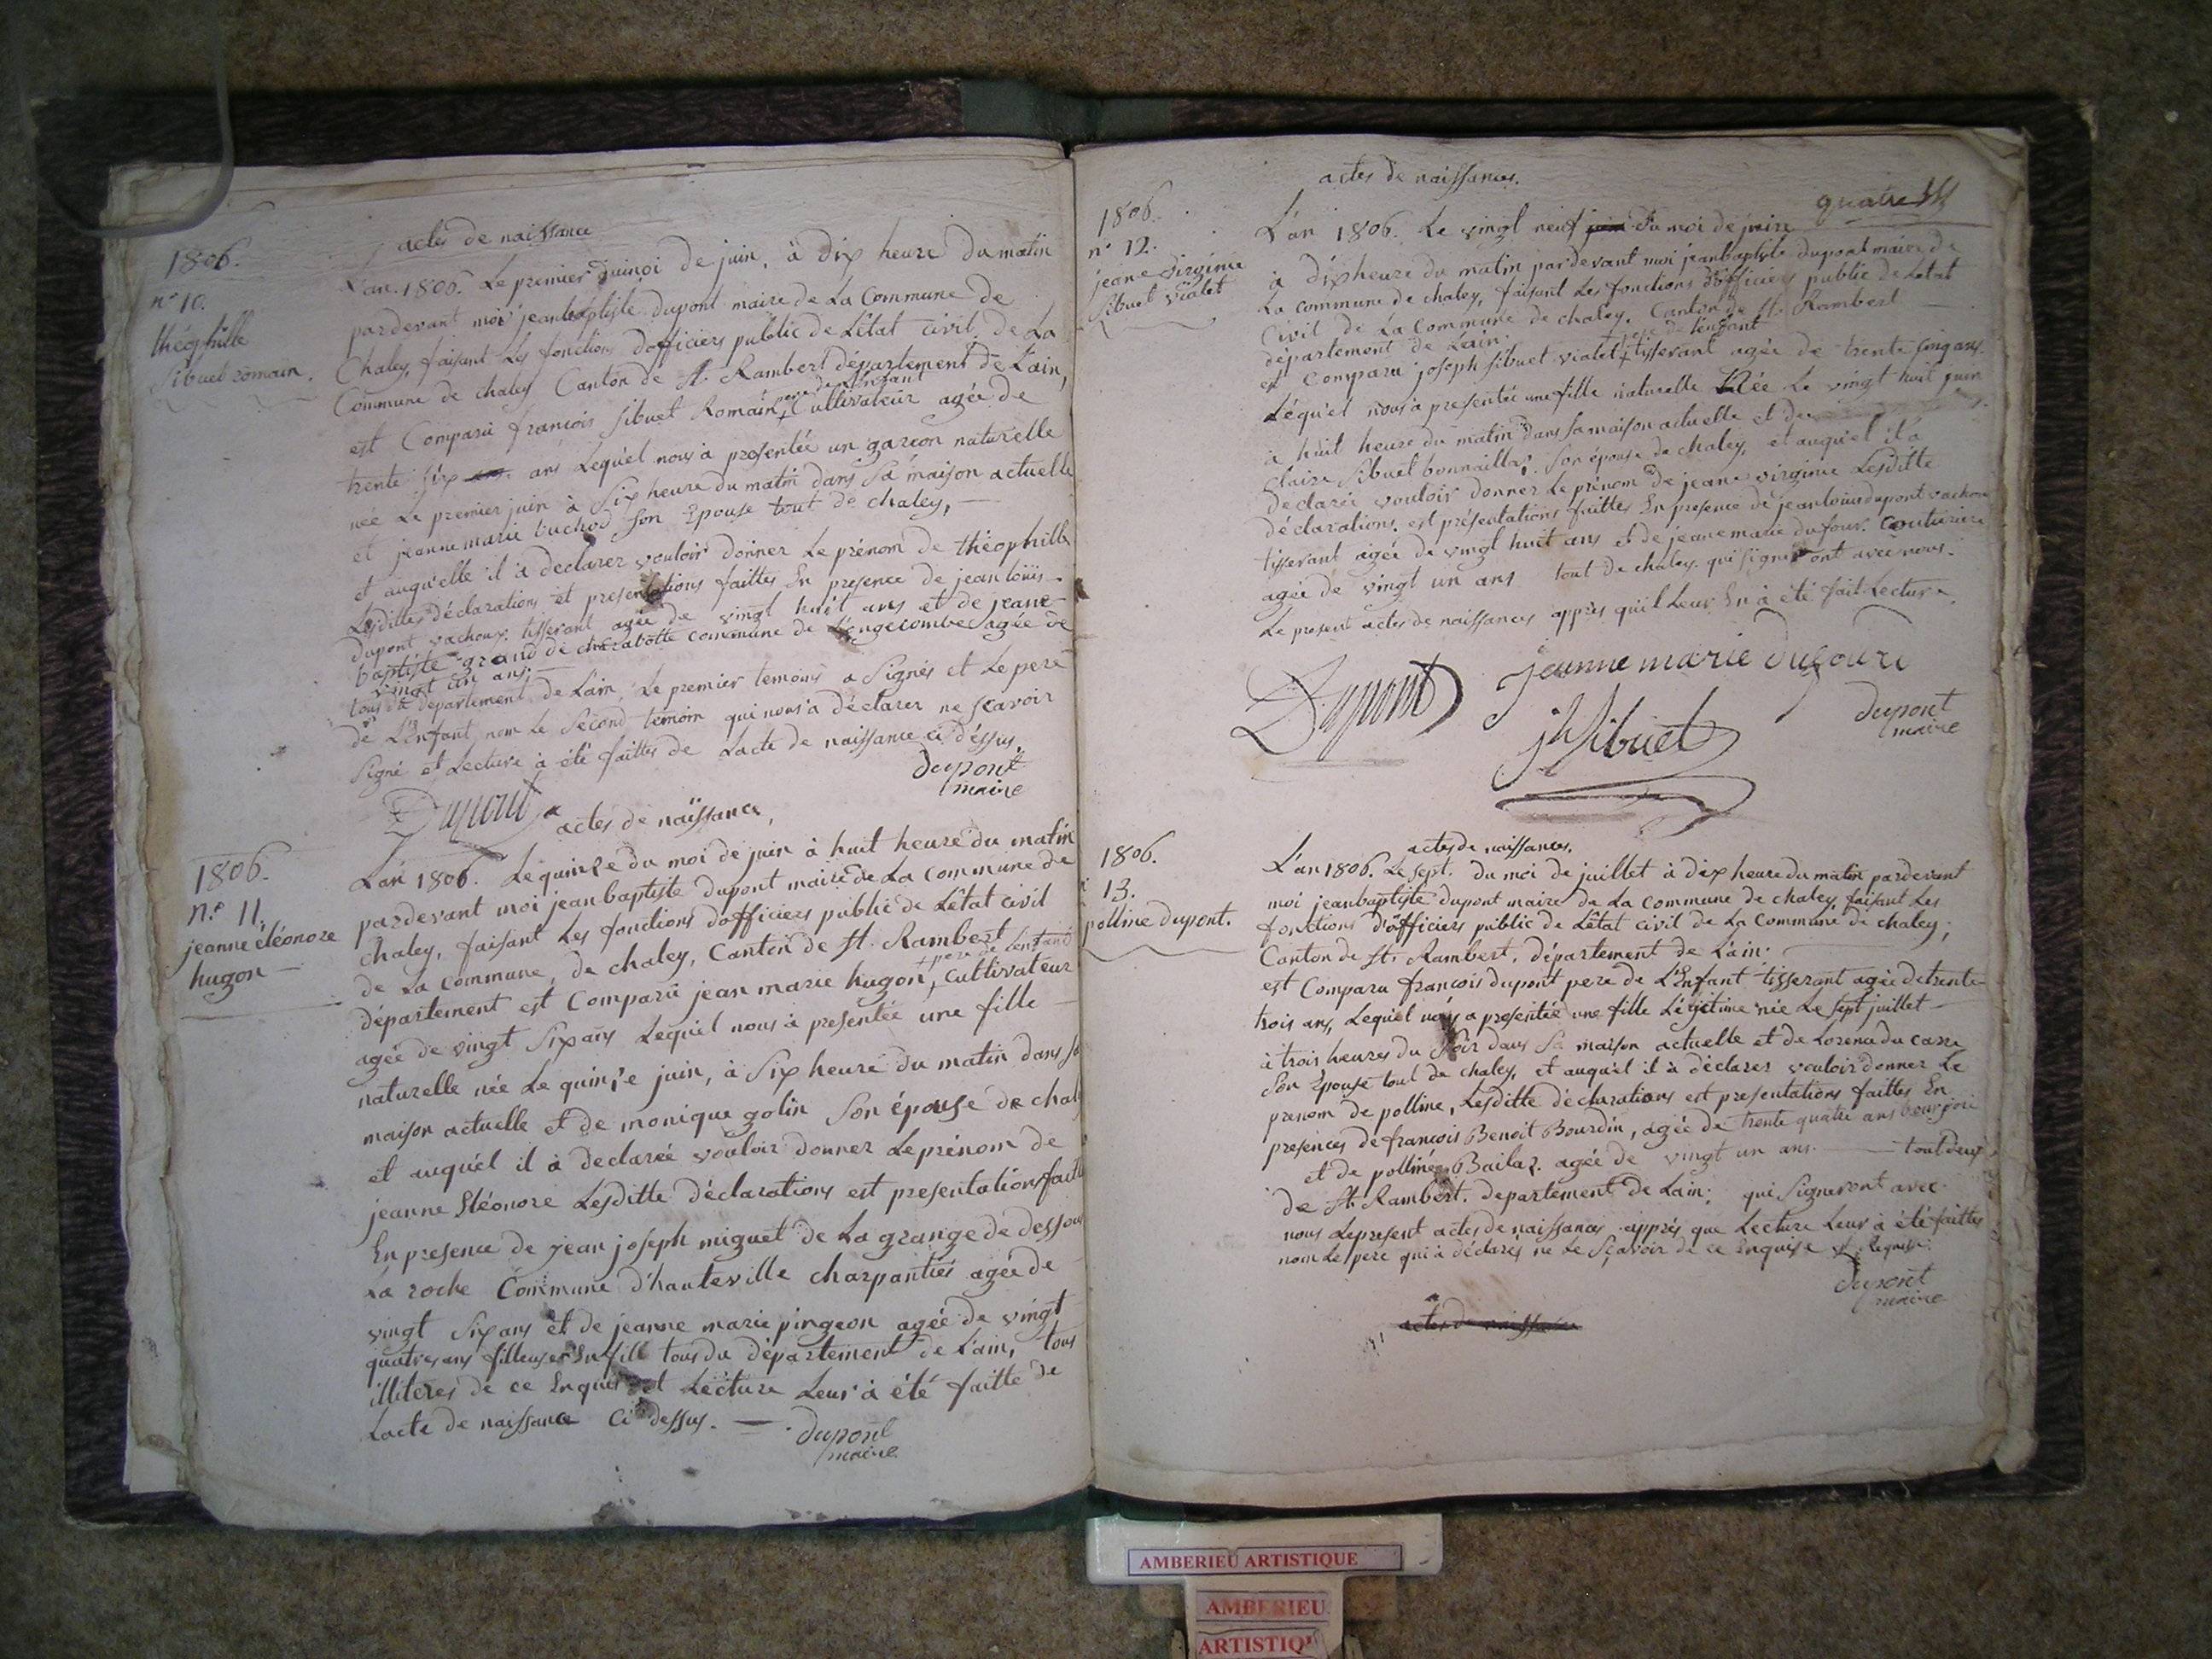 actes de naissance
1806.
n° 10.
théophille
sibuet romain.
L'an. 1806. Le premier du moi de juin, à dix heure du matin
pardevant moi jeanbaptiste dupont maire de La Commune de
Chaley, faisant Les fonctions dofficiers public de L'état civil, de La
Commune de chaley Canton de St. Rambert département de L'ain,
est Comparû françois sibuet Romain + cultivateur agée de
pere de L'enfant
trente six ans Lequel nous à presentée un garçon naturelle
née Le premier juin à Six heure du matin dans Sa maison actuelle
et jeanne marie son Epouse tout de chaley,
et auquelle il à declarer vouloir donner Le prénom de théophille
Lesdittes déclarations et presentations faittes En presence de jean loüis
dupont vachoux tisserant agée de vingt huit ans et de jeane
baptiste grand de charabotte commune de L'engecombe agée de
vingt un ans
tous du departement de L'ain, Le premier temoins a Signés et Le pere
de L'Enfant, nom Le Second temoin qui nous a déclarer ne scavoir
Signé et Lecture à été faittes de Lacte de naissance ci déssus.
dupont
maire
Dupont
actes de naissance,
1806.
n.° 11.
jeanne éléonore
hugon
L'an 1806. Le quinze du moi de juin à huit heure du matin
pardevant moi jeanbaptiste dupont maire de La Commune de
chaley, faisant Les fonctions dofficiers public de L'état civil
de La Commune, de chaley, Canton de St. Rambert
+ pere de L'enfant
département est Comparû jean marie hugon, + cultivateur
agée de vingt Six ans Lequel nous à presentée une fille
naturelle née Le quinze juin, à Six heure du matin dans sa
maison actuelle et de monique golin Son épouse de chaley
et auquel il à declarée vouloir donner Le prénom de
jeanne Eléonore Lesditte déclarations est presentations faitte
En presence de jean joseph miguet de La grange de dessous
La roche Commune d'hauteville charpantiés agée de
vingt Six ans et de jeanne marie pingeon agée de vingt
quatres ans filleuser En fill tous du département de L'ain, tous
illiteres de ce Enquis et Lecture Leur à été faitte de
Lacte de naissance Ci dessus.
dupont
maire
actes de naissances.
quatre
1806.
n° 12.
jeane virginie
sibuet vialet
L'an 1806. Le vingt neuf juin du moi de juin
à dix heure du matin pardevant moi jeanbaptiste dupont maire de
La commune de chaley, faisant Les fonctions d'officiers public de L'état
Civil de La Commune de chaley. Canton de St. Rambert
département de L'ain.
+ pere de L'enfant
est Comparu joseph sibuet vialet + tisserant agée de trente cinq ans
Lequel nous à presentée une fille naturelle Née Le vingt huit juin
à huit heure du matin dans sa maison actuelle et de
claire Sibuet bonnaillas, Son épouse de chaley, et auquel il à
declarée vouloir donner Le prénom de jeane virginie Lesditte
déclarations. est présentations faittes En presence de jean louis dupont vachoux
tisserant agée de vingt huit ans et de jeane marie dufour. couturiere
agée de vingt un ans tout de chaley. qui signeront avec nous.
Le present actes de naissances apprès qu'il Leur En à été fait Lecture.
Dupont
jeanne marie dufoure
jh Sibuet
dupont
maire
actes de naissances.
1806.
13.
polline dupont.
L'an 1806. Le sept. du moi de juillet à dix heure du matin pardevant
moi jeanbaptiste dupont maire de La commune de chaley faisant Les
fonctions d'officiers public de L'état civil de La Commune de chaley,
Canton de St. Rambert. département de L'ain.
est Comparu françois dupont pere de L'Enfant tisserant agée de trente
trois ans, Lequel nous a presentée une fille Légitime née Le sept juillet
à trois heures du Soir dans Sa maison actuelle et de Lorena du carre
Son Epouse tout de chaley, et auquel il à déclarer vouloir donner Le
prenom de polline, Lesditte déclarations est presentations faittes En
presences de françois Benoit Bourdin, agée de trente quatre ans bourjoie
et de polline Bailaz. agée de vingt un ans. tout deux
de St. Rambert. departement de L'ain; qui Signeront avec
nous Le present actes de naissances apprés que Lecture Leur à été faittes
nom Le pere qui à déclarés ne Le Sçavoir de ce Enquise et Requise.
dupont
maire
actes de naissances
AMBERIEU ARTISTIQUE
AMBERIEU
ARTISTIQU